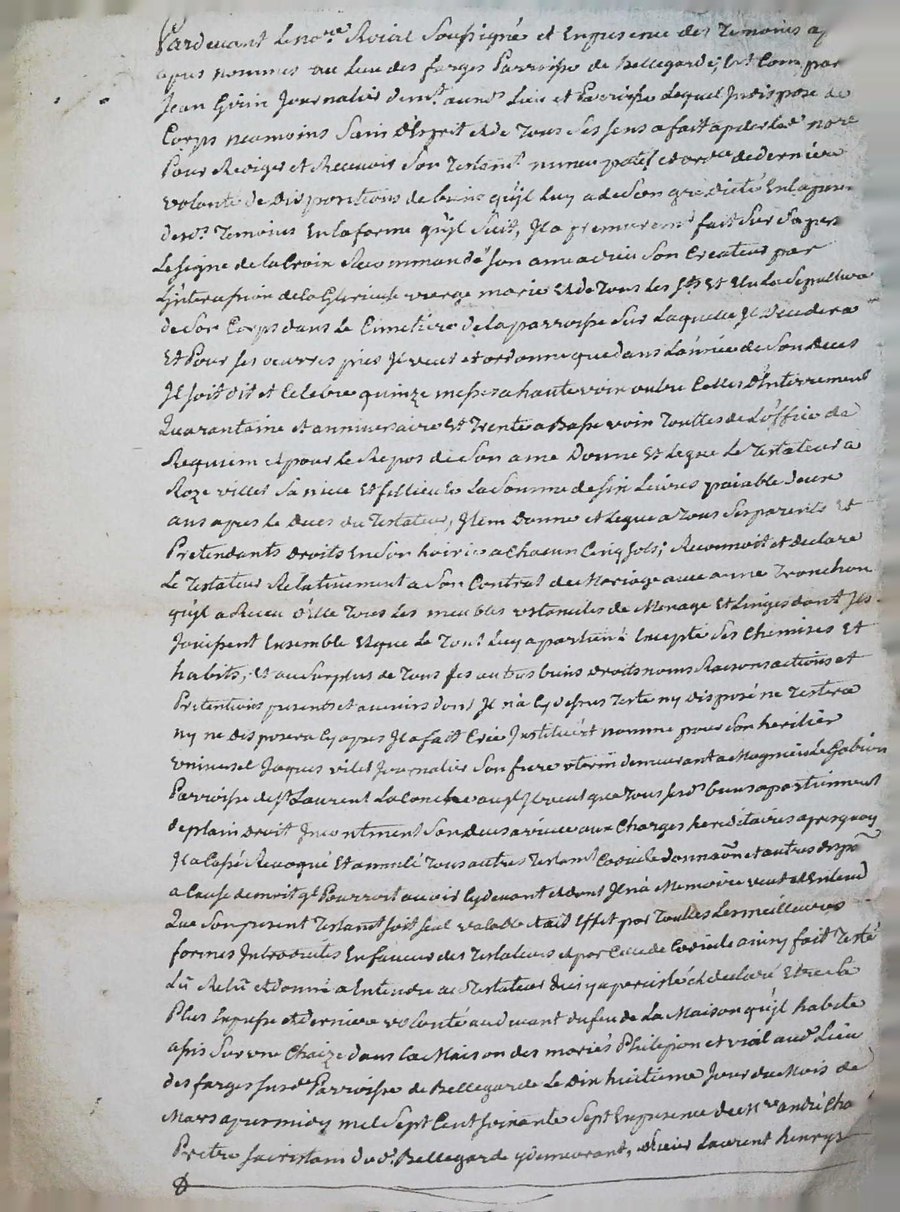 Pardevant Le no.re Roial Soussigné et En presence des Temoins
apres nommés au Lieu des farges Parroisse de Bellegarde, est Compar
Jean Girin Journalier dem.t aud.t Lieu et Parroisse Lequel Indisposé de
Corps neamoins Sain D'Esprit et de Tous Ses Sens a fait apeler Led.t no.re
Pour Rediger et Recevoir Son Testam.t nuncupatif et ord.ce de derniere
volonté de Disposition de biens qu'il Luy a de Son gré dicté En la presen
desd.t Temoins En la forme qu'il Suit, Il a premierem.t fait Sur Sa pers
Le Signe de la Croix Recommandé Son ame a dieu Son Createur par
L'intercession de la Glorieuse vierge marie Et de Tous Les S.ts Et Elu La Sepulture
de Son Corps dans Le Cimetiere de la parroisse Sur Laquelle Il Decedera
Et Pour Ses oeuvres pies Il veut et ordonne que dans L'année de Son Deces
Il Soit Dit et Celebré quinze messes a haute voix outre Celles D'Enterrement
Quarantaine et anniversaire Et Trente a Basse voix Touttes de L'office de
Requiem et pour Le Repos de Son ame Donne Et Legue Le Testateur a
Roze villet Sa niece Et fillieule La Somme de Six Livres paiable Deux
ans apres Le Deces du Testateur, Item Donne et Legue a Tous Ses parents Et
Pretendants Droits En Son hoirie a Chacun Cinq Sols; Reconnoit et Declare
Le Testateur Relativement a Son Contrat de Mariage avec anne Tronchon
qu'il a Receu d'Elle Tous Les meubles ustanciles de Menage Et Linges dont Ils
Jouissent Ensemble Et que Le Tout Luy apartient Excepté Ses Chemises Et
habits, Et au Surplus de Tous Ses autres biens Droits noms Raisons actions et
Pretentions presents et avenirs dont Il n'a Cy dessus Testé ny Disposé ne Testera
ny ne Disposera Cy apres Il a fait Créé Institué et nommé pour Son heritier
universel Jaques vilet Journalier Son frere uterin demeurant a Magnieu Le Gabion
Parroisse de S.t Laurent La Conche auq.l Il veut que Tous Sesd.t biens apartiennent
de plain Droit Incontinent Son Deces arrivé aux Charges hereditaires apres quoy
Il a Cassé Revoqué Et annullé Tous autres Testam.t Codicile Donnaõn et autres Dispõ
a Cause de mort q.l Pourroit avoir Cy devant et dont Il n'a Memoire veut et Entend
Que Son present Testam.t Soit Seul valable et ait Effet par Touttes Les meilleures
formes Introduites En faveur des Testateurs et par Celle de Codicile ainsy fait Testé
Lû Relû et donné a Entendre au Testateur qui y a persisté et declaré Etre La
Plus Expresse et derniere volonté au devant du feu de La Maison qu'il habite
assis Sur une Chaize dans La Maison des mariés Philipon et vial aud.t Lieu
des farges Susd.te Parroisse de Bellegarde Le Dix huitieme Jour du Mois de
Mars apres midy mil Sept Cent Soixante Sept En presence de M.re andré
Pretre Sacristain dud.t Bellegarde y demeurant, Sieur Laurent henrys